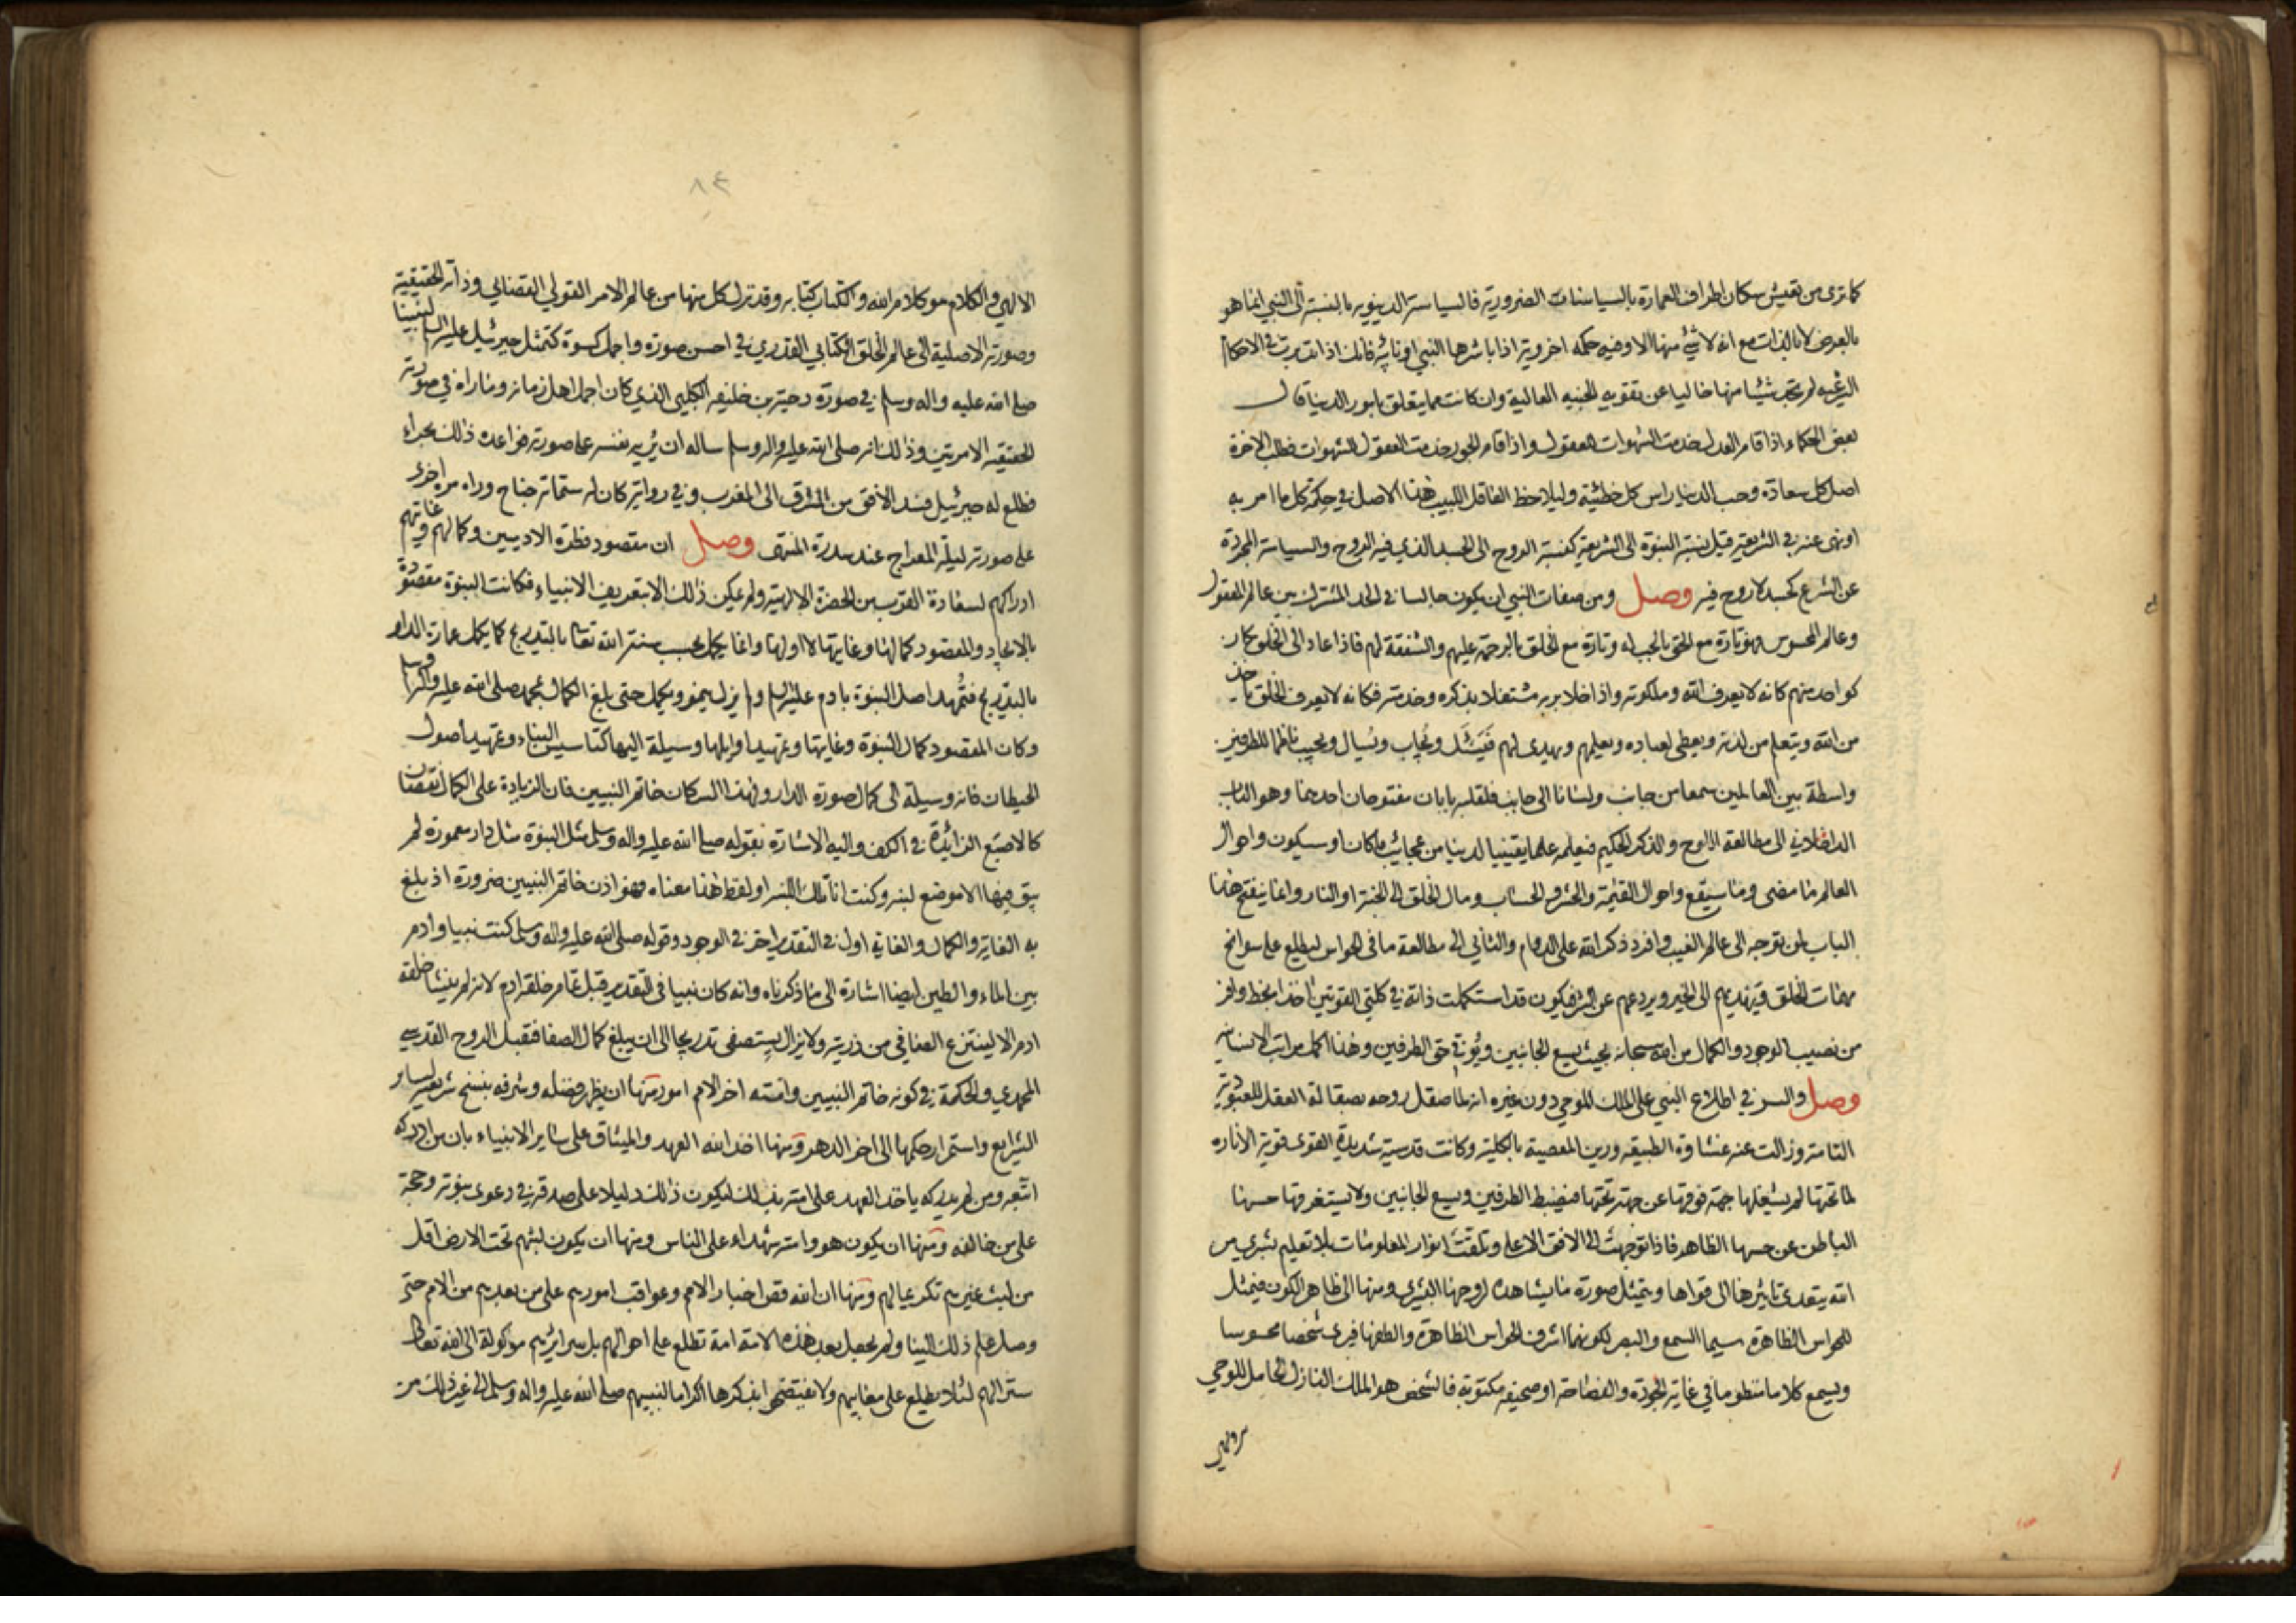 كما ترى من تعيش سكان اطراف العمارة بالسياسات الضرورية فالسياسة الدينويه بالنسبة الى النبي انما هو
بالعرض لا بالذات مع انه لا شئ منها الا وفيه حكمه اخروية اذا باشرها النبي او نائبه فانك اذا تدبرت في الاحكام
الشرعيه لم تجد شيئا منها خاليا عن تقويه الجنبه العالية وان كانت مما يتعلق بامور الدنيا قال
بعض الحكماء اذا قام العدل خدمت الشهوات العقول واذا قام الجور خدمت العقول الشهوات فطلب الاخرة
اصل كل سعادة وحب الدنيا راس كل خطيئة وليلاحظ العاقل اللبيب هذا الاصل في حكمة كل ما امر به
او نهى عنه في الشريعة قيل نسبة النبوة الى الشريعة كنسبة الروح الى الجسد الذي فيه الروح والسياسة المجردة
عن الشرع كجسد لا روح فيه وصل ومن صفات النبي ان يكون جالسا في الحد المشترك بين عالم المعقول
وعالم المحسوس فهو تارة مع الحق بالحب له وتارة مع الخلق بالرحمة عليهم والشفقة لهم فاذا عاد الى الخلق كان
كواحد منهم كانه لا يعرف الله وملكوته واذا خلا بربه مشتغلا بذكره وخدمته فكانه لا يعرف الخلق ياخذ
من الله ويتعلم من لدنه ويعطي لعباده ويعلمهم ويهدي لهم فيسئل ويجاب ويسال ويجيب ناظما للطرفين
واسطة بين العالمين سمعا من جانب ولسانا الى جانب فلقلبه بابان مفتوحان احدهما وهو الباب
الداخلاني الى مطالعة اللوح والذكر الحكيم فيعلمه علما يقينيا لدنيا من عجايب ما كان او سيكون واحوال
العالم ما مضى وما سيقع واحوال القيمة والحشر والحساب ومال الخلق الى الجنة او النار وانما ينفتح هذا
الباب لمن توجه الى عالم الغيب وافرد ذكر الله على الدوام والثاني الى مطالعة ما في الحواس ليطلع على سوانح
مهمات الخلق فيهديهم الى الخير ويردعهم عن الشر فيكون قد استكملت ذاته في كلتي القوتين اخذا بحظ وافر
من نصيب الوجود والكمال من الله سبحانه بحيث يسع الجانبين ويوتي حق الطرفين وهذا اكمل مراتب الانسانيه
وصل والسر في اطلاع النبي على الملك الموحي دون غيره انه لما صقل روحه بصقالة العقل للعبودية
التامة وزالت عنه غشاوة الطبيعه ورين المعصية بالكلية وكانت قدسية شديدة القوى قوية الانارة
لما تحتها لم يشغلها جهة فوقها عن جهة تحتها فيضبط الطرفين ويسع الجانبين ولا يستغرقها حسها
الباطن عن حسها الظاهر فاذا توجهت الى الافق الاعلى وتلقت انوار المعلومات بلا تعليم بشري من
الله يتعدى تاثيرها الى قواها ويتمثل صورة ما يشاهده لروحها البشري ومنها الى ظاهر الكون فيتمثل
للحواس الظاهرة سيما السمع والبصر لكونهما اشرف الحواس الظاهرة والطفها فيرى شخصا محسوسا
ويسمع كلاما منظوما في غاية الجودة والفصاحة او صحيفة مكتوبة فالشخص هو الملك النازل الحامل للوحي
٨٤
الالهي والكلام هو كلام الله والكتاب كتابه وقد نزل كل منها من عالم الامر القولي القضائي وذاته الحقيقية
وصورته الاصلية الى عالم الخلق الكتابي القدري في احسن صورة واجمل كسوة كتمثل جبرئيل عليه السلم لنبينا
صلى الله عليه واله وسلم في صورة دحية بن خليفه الكلبي الذي كان اجمل اهل زمانه وما راه في صورته
الحقيقيه الا مرتين وذلك انه صلى الله عليه واله وسلم ساله ان يريه نفسه على صورته فواعده ذلك بحراء
فطلع له جبرئيل فسد الافق من المشرق الى المغرب وفي رواية كان له ستمائة جناح وراه مرة اخرى
على صورته ليلة المعراج عند سدرة المنتهى وصل ان مقصود فطرة الادميين وكمالهم وغايتهم
ادراكهم لسعادة القرب من الحضرة الالهية ولم يمكن ذلك الا بتعريف الانبياء فكانت النبوة مقصودة
بالايجاد والمقصود كمالها وغايتها لا اولها وانما يكمل بحسب سنة الله تعالى بالتدريج كما يكمل عمارة الدار
بالتدريج فتمهد اصل النبوة بادم عليه السلم ولم يزل ينمو ويكمل حتى بلغ الكمال بمحمد صلى الله عليه واله وسلم
وكان المقصود كمال النبوة وغايتها وتمهيد اوايلها وسيلة اليها كتاسيس البناء وتمهيد اصول
الحيطان فانه وسيلة الى كمال صورة الدار ولهذا السر كان خاتم النبيين فان الزيادة على الكمال نقصان
كالاصبع الزائدة في الكف واليه الاشارة بقوله صلى الله عليه واله وسلم مثل النبوة مثل دار معمورة لم
يبق فيها الا موضع لبنه وكنت انا تلك اللبنه او لفظ هذا معناه فهو اذن خاتم النبيين ضرورة اذ بلغ
به الغاية والكمال والغاية اول في التقدير اخر في الوجود وقوله صلى الله عليه واله وسلم كنت نبيا وادم
بين الماء والطين ايضا اشارة الى ما ذكرناه وانه كان نبيا في التقدير قبل تمام خلقة ادم لانه لم ينشا خلقه
ادم الا لينتزع الصافي من ذريته ولا يزال يستصفى تدريجا الى ان يبلغ كمال الصفا فقبل الروح القدسي
المحمدي والحكمة في كونه خاتم النبيين وامته اخر الامم امور منها ان يظهر فضله وشرفه بنسخ شريعته لساير
الشرايع واستمرار حكمها الى اخر الدهر ومنها اخذ الله العهد والميثاق على ساير الانبياء بان من ادركه
اتبعه ومن لم يدركه ياخذ العهد على امته بذلك ليكون ذلك دليلا على صدقه في دعوى نبوته وحجة
على من خالفه ومنها ان يكون هو وامته شهداء على الناس ومنها ان يكون لبثهم تحت الارض اقل
من لبث غيرهم تكريما لهم ومنها ان الله قص اخبار الامم وعواقب امورهم على من بعدهم من الامم حتى
وصل علم ذلك الينا ولم يجعل بعد هذه الامة امة تطلع على احوالهم بل سرايرهم موكولة الى الله تعالى
ستر الهم لئلا يطلع على معايبهم ولا يفتضحوا بذكرها اكراما لنبيهم صلى الله عليه واله وسلم الى غير ذلك من